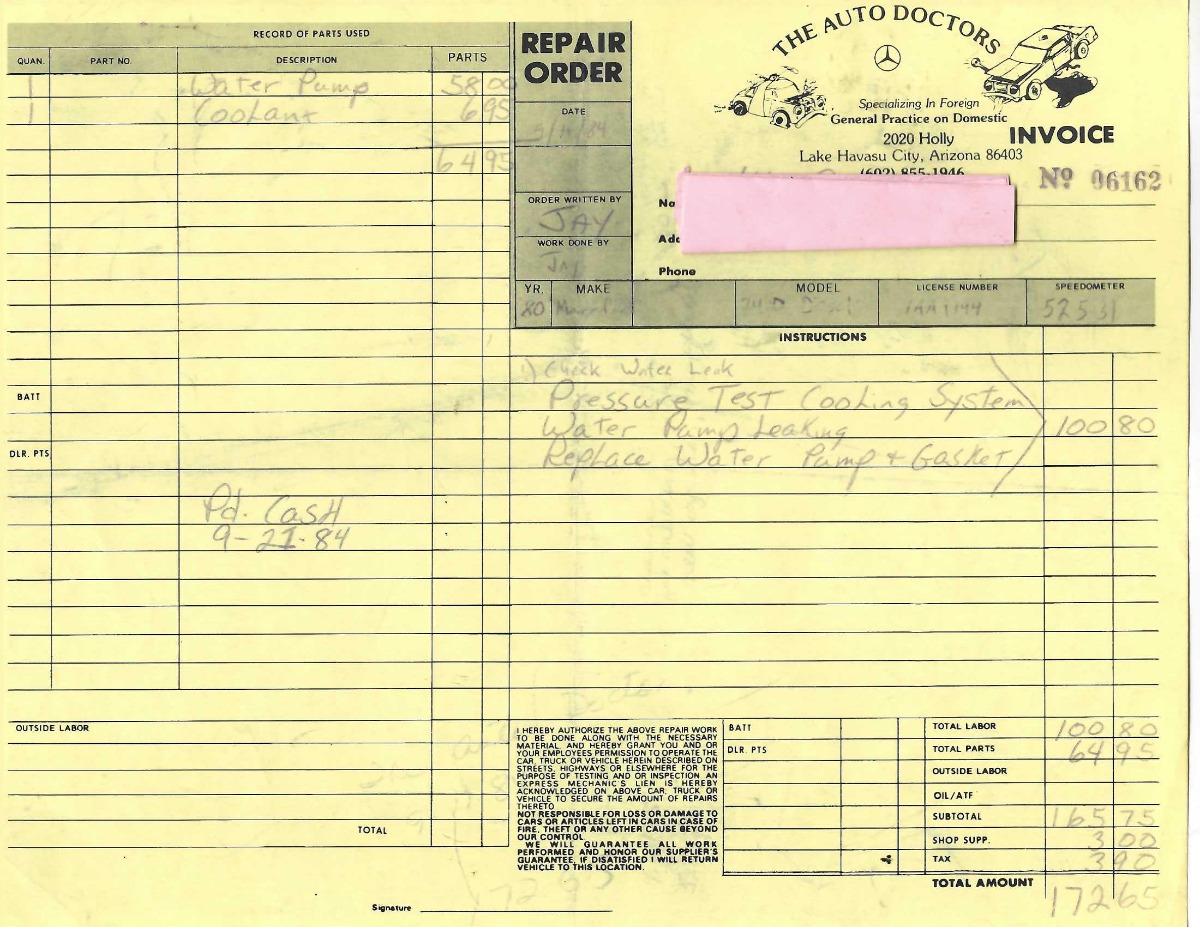 RECORD OF PARTS USED
QUAN. PART NO. DESCRIPTION PARTS
1 Water Pump 58 00
1 Coolant 6 95
64 95
BATT
DLR. PTS
Pd. Cash
9-21-84
OUTSIDE LABOR
TOTAL
REPAIR ORDER
DATE
ORDER WRITTEN BY
JAY
WORK DONE BY
Jay
THE AUTO DOCTORS
Specializing In Foreign
General Practice on Domestic
2020 Holly
INVOICE
Lake Havasu City, Arizona 86403
(602) 855-1946
Nº 06162
Phone
YR. MAKE MODEL LICENSE NUMBER SPEEDOMETER
80 52531
INSTRUCTIONS
1) Check Water Leak
Pressure Test Cooling System
Water Pump Leaking 100 80
Replace Water Pump + Gasket
I HEREBY AUTHORIZE THE ABOVE REPAIR WORK
TO BE DONE ALONG WITH THE NECESSARY
MATERIAL, AND HEREBY GRANT YOU AND OR
YOUR EMPLOYEES PERMISSION TO OPERATE THE
CAR, TRUCK OR VEHICLE HEREIN DESCRIBED ON
STREETS, HIGHWAYS OR ELSEWHERE FOR THE
PURPOSE OF TESTING AND OR INSPECTION. AN
EXPRESS MECHANIC'S LIEN IS HEREBY
ACKNOWLEDGED ON ABOVE CAR, TRUCK OR
VEHICLE TO SECURE THE AMOUNT OF REPAIRS
THERETO
NOT RESPONSIBLE FOR LOSS OR DAMAGE TO
CARS OR ARTICLES LEFT IN CARS IN CASE OF
FIRE, THEFT OR ANY OTHER CAUSE BEYOND
OUR CONTROL.
WE WILL GUARANTEE ALL WORK
PERFORMED AND HONOR OUR SUPPLIER'S
GUARANTEE, IF DISATISFIED I WILL RETURN
VEHICLE TO THIS LOCATION.
Signature
BATT
DLR. PTS
TOTAL LABOR 100 80
TOTAL PARTS 64 95
OUTSIDE LABOR
OIL/ATF
SUBTOTAL 165 75
SHOP SUPP. 3 00
TAX 3 90
TOTAL AMOUNT 172 65